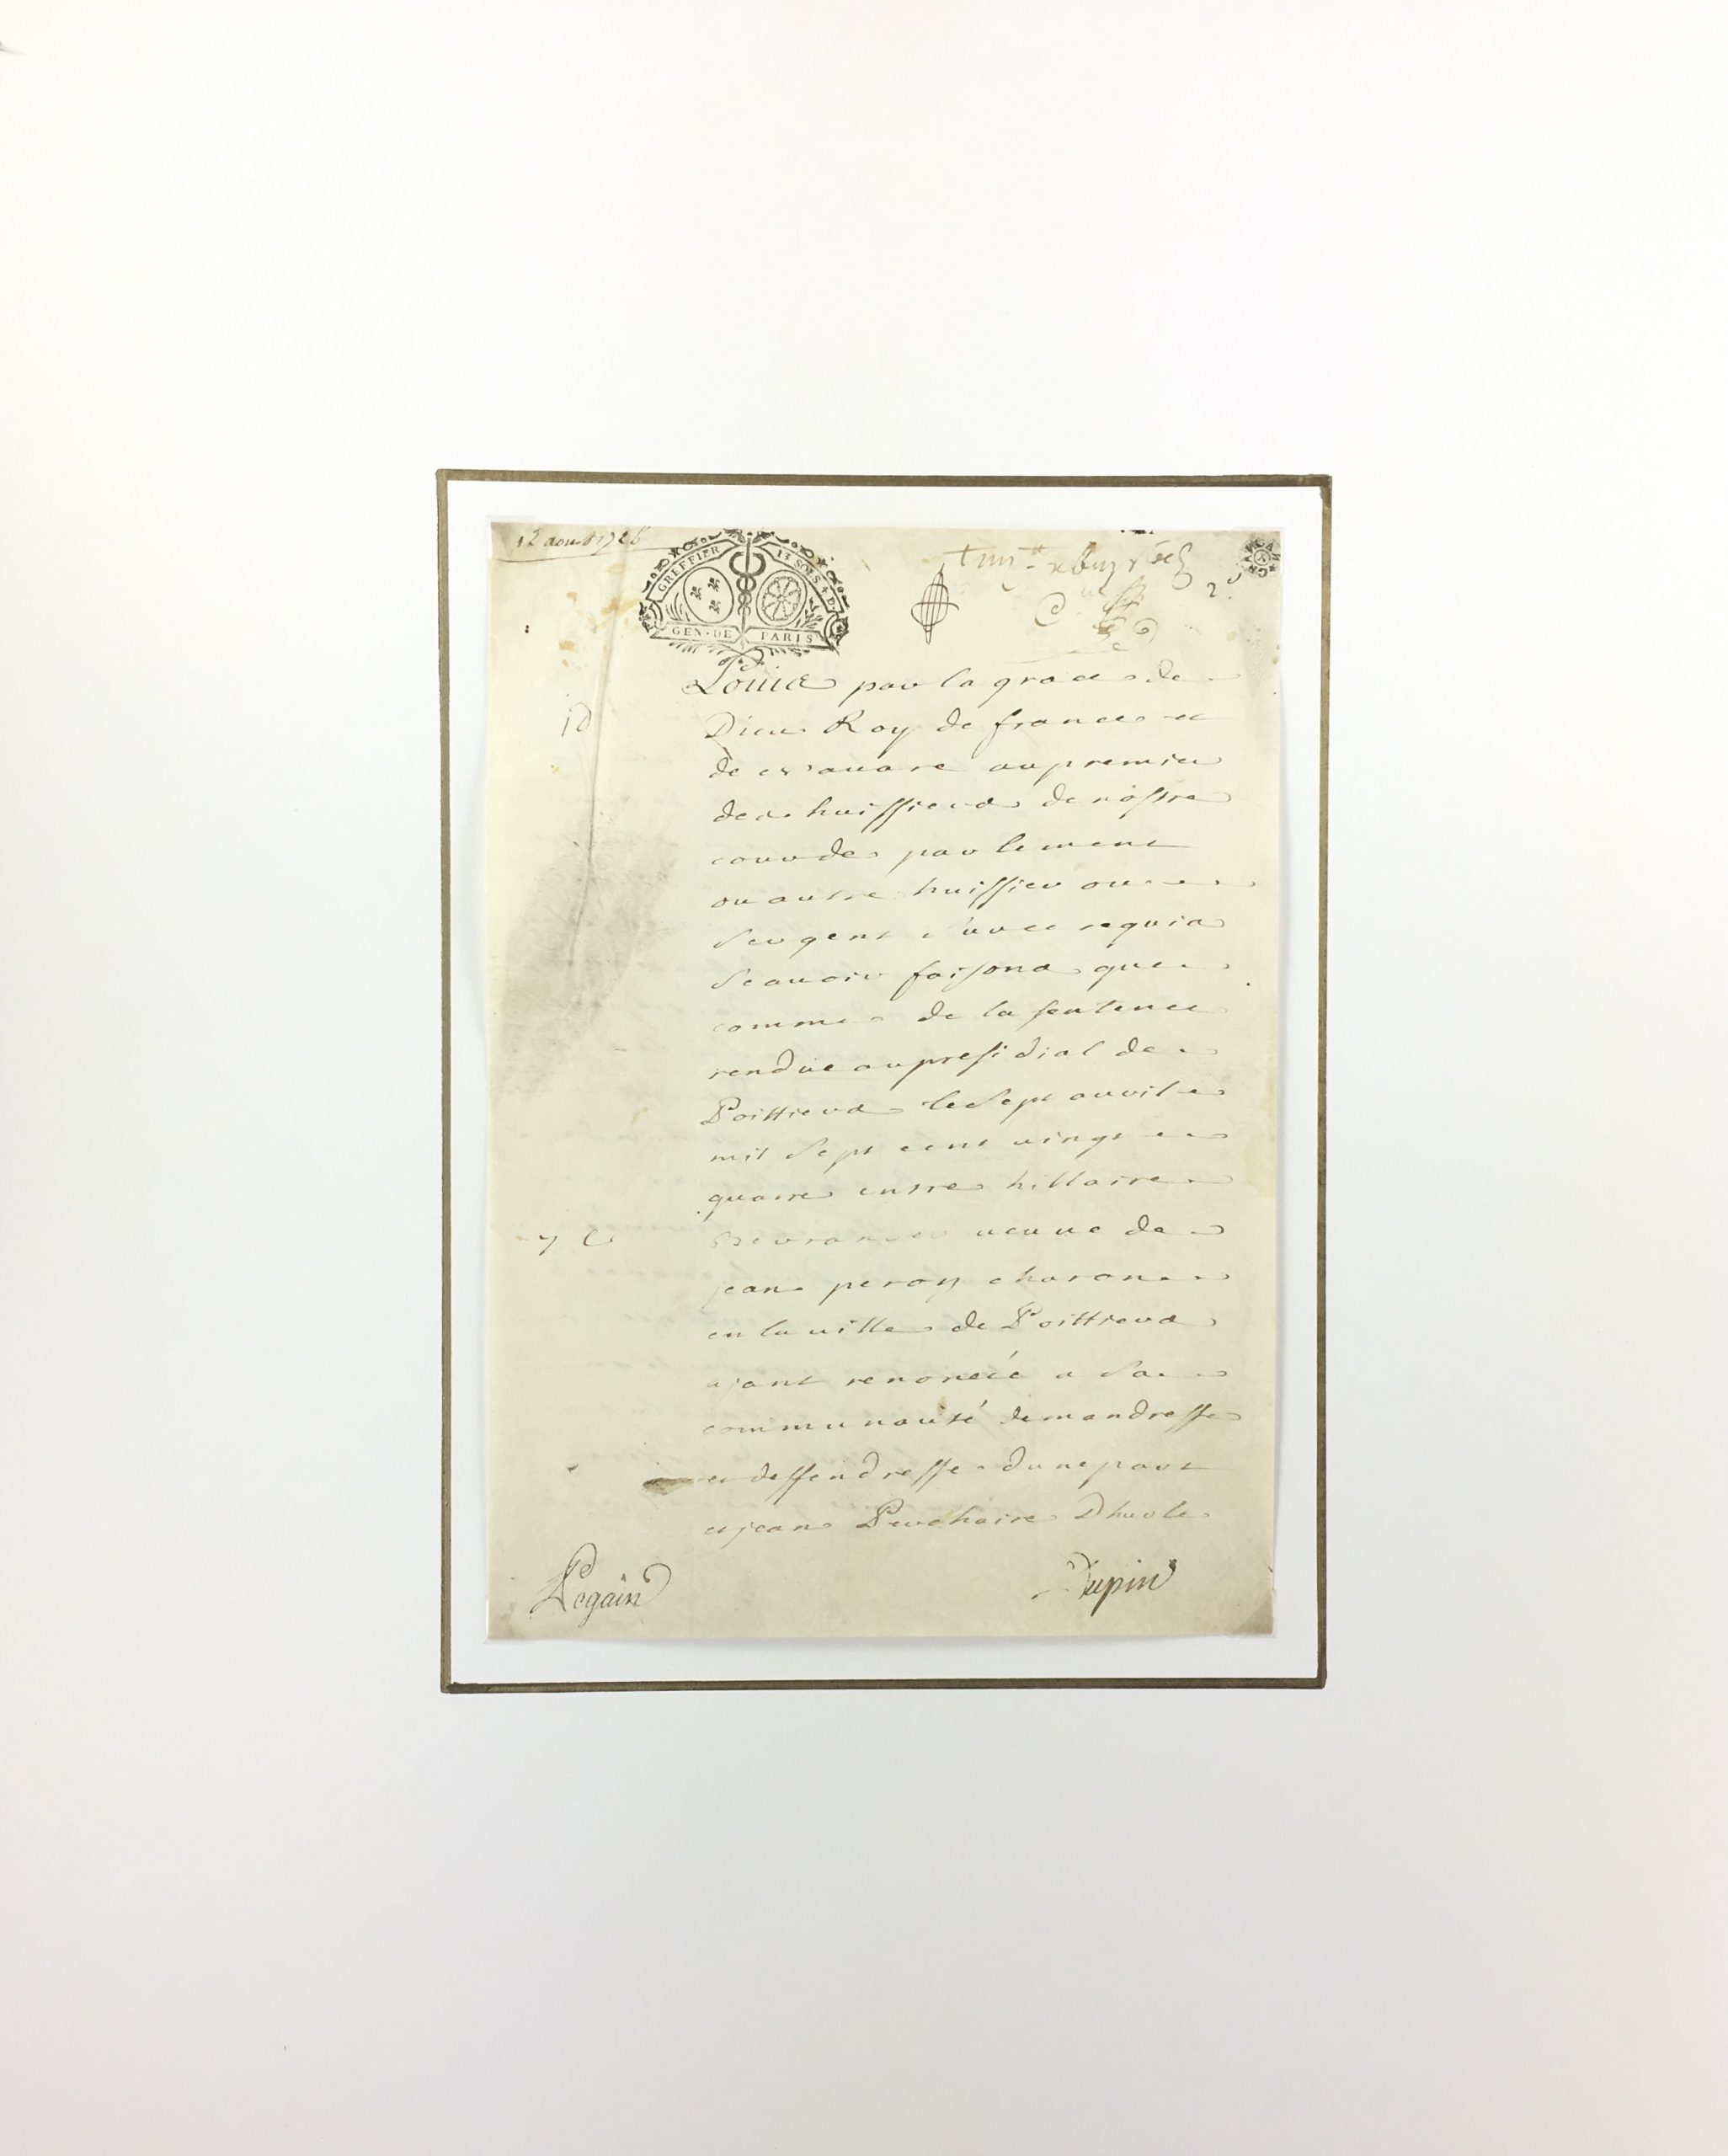 12 aoust 1726
GREFFIER 13 SOLS 4 D.
GEN·DE PARIS
Louis par la grace de
Dieu Roy de france et
de navare au premier
des huissiers de nostre
cour de parlement
ou autre huissier ou
sergent sur ce requis
scavoir faisons que
comme de la sentence
rendue au presidial de
Poittiers le sept avril
mil sept cent vingt
quatre entre hillaire
veuve de
jean peroy charon
en la ville de Poittiers
ajant renoncée a sa
communauté demandresse
et deffendresse dune part
et jean
Legain Dupin